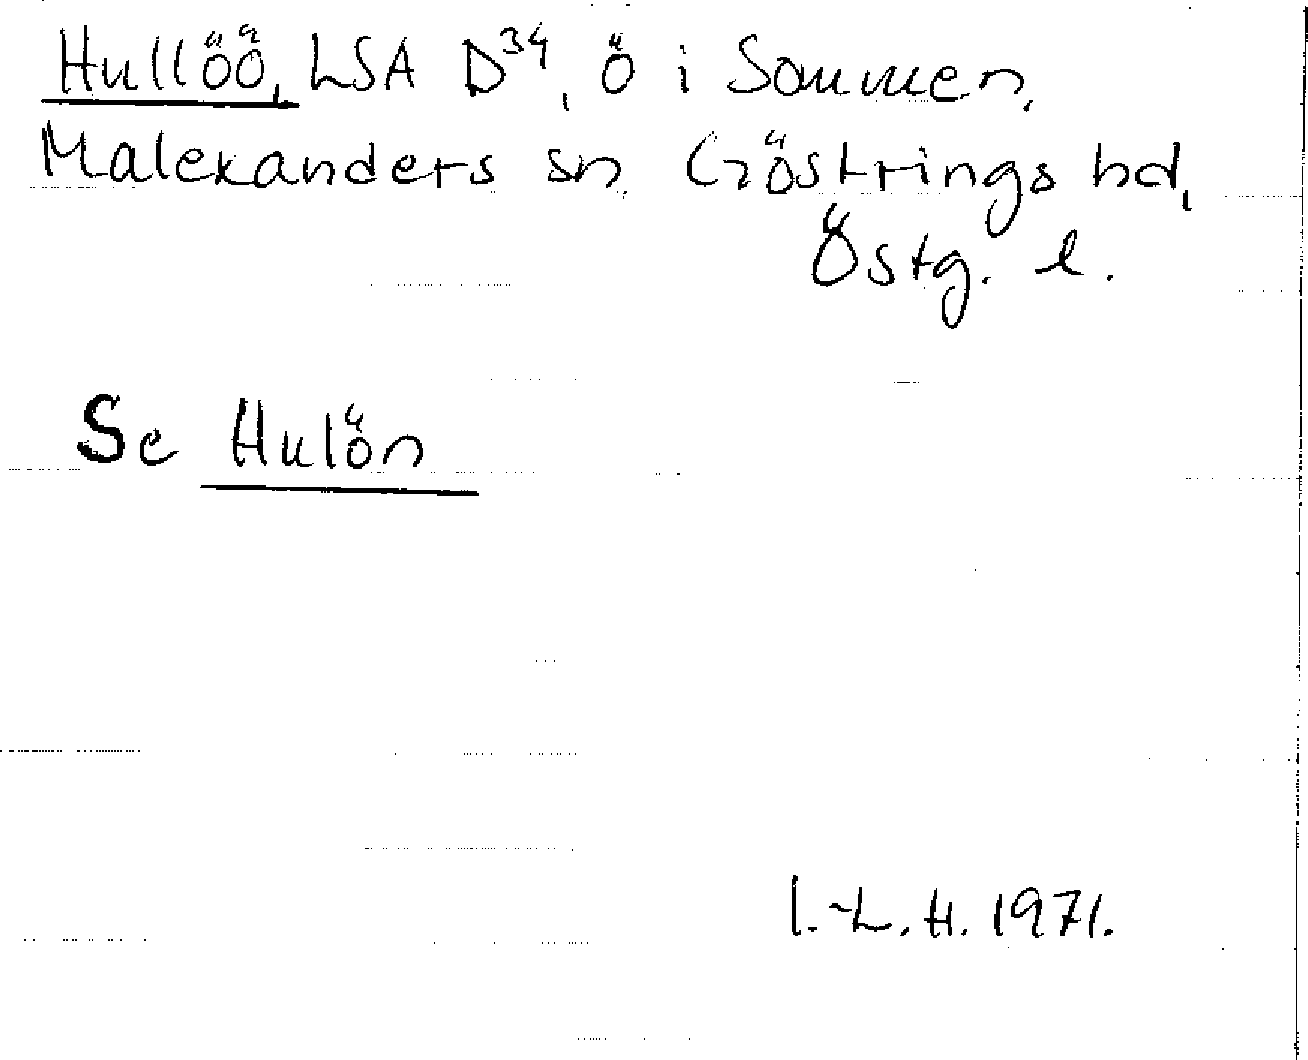 Hullöö, LSA D³⁴, ö i Sommen,
Malexanders sn, Göstrings hd,
Östg. l.
Se Hulön
I.-L. H. 1971.